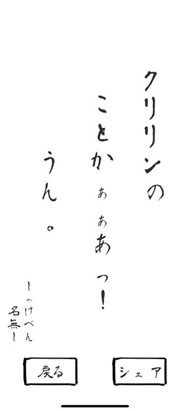 クリリンの
ことかぁぁあっ！
うん。
しっけべん
名無し
戻る
シェア